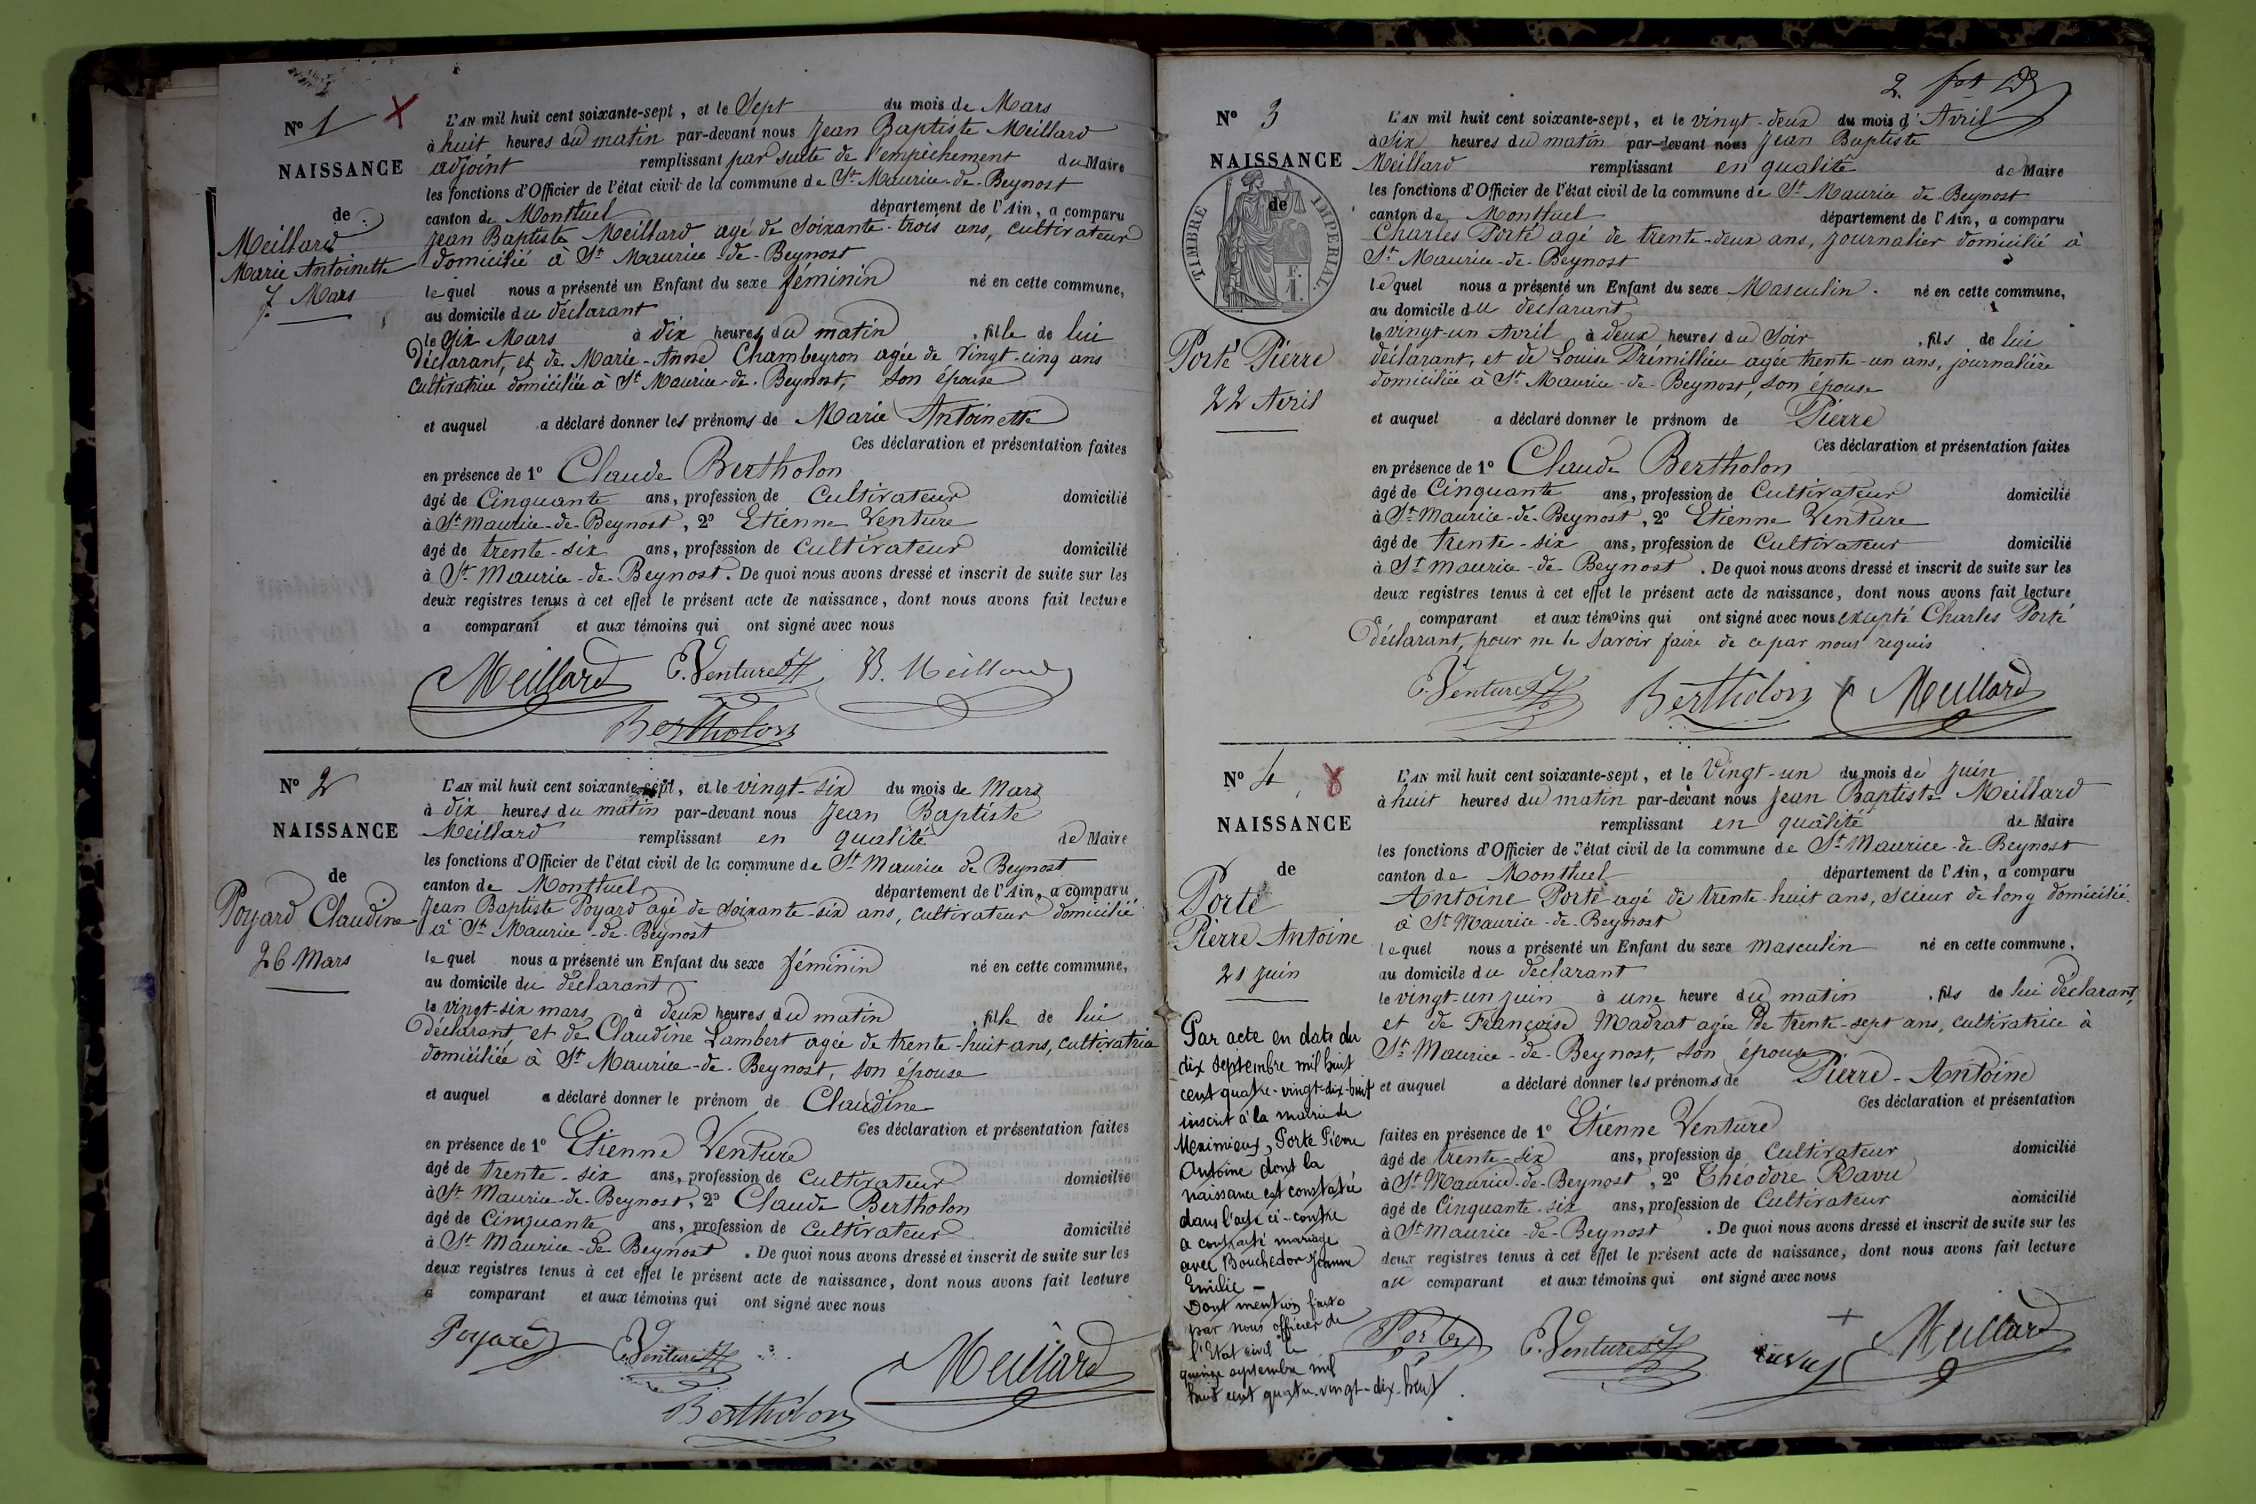 Nº 1 X
NAISSANCE
de
Meillard
Marie Antoinette
7 Mars
L'AN mil huit cent soixante-sept, et le Sept du mois de Mars
à huit heures du matin par-devant nous Jean Baptiste Meillard
adjoint remplissant par suite de l'empêchement du Maire
les fonctions d'Officier de l'état civil de la commune de St Maurice-de-Beynost
canton de Montluel département de l'Ain, a comparu
Jean Baptiste Meillard agé de Soixante-trois ans, cultivateur
domicilié à St Maurice-de-Beynost
lequel nous a présenté un Enfant du sexe féminin né en cette commune,
au domicile du déclarant
le Six Mars à dix heures du matin, fille de lui
Déclarant, et de Marie-Anne Chambeyron agée de Vingt-cinq ans
cultivatrice domiciliée à St Maurice-de-Beynost, son épouse
et auquel a déclaré donner les prénoms de Marie Antoinette
Ces déclaration et présentation faites
en présence de 1º Claude Bertholon
âgé de Cinquante ans, profession de Cultivateur domicilié
à St Maurice-de-Beynost, 2º Etienne Venture
âgé de trente-six ans, profession de cultivateur domicilié
à St Maurice-de-Beynost. De quoi nous avons dressé et inscrit de suite sur les
deux registres tenus à cet effet le présent acte de naissance, dont nous avons fait lecture
a comparant et aux témoins qui ont signé avec nous
Meillard E. Venture B. Meillard
Bertholon
Nº 2
NAISSANCE
de
Poyard Claudine
26 Mars
L'AN mil huit cent soixante-sept, et le vingt-six du mois de Mars
à dix heures du matin par-devant nous Jean Baptiste
Meillard remplissant en qualité de Maire
les fonctions d'Officier de l'état civil de la commune de St Maurice de Beynost
canton de Montluel département de l'Ain, a comparu
Jean Baptiste Poyard agé de soixante-six ans, cultivateur domicilié
à St Maurice-de-Beynost
lequel nous a présenté un Enfant du sexe féminin né en cette commune,
au domicile du déclarant
le vingt-six mars à deux heures du matin, fille de lui
Déclarant et de Claudine Lambert agée de trente-huit ans, cultivatrice
domiciliée à St Maurice-de-Beynost, son épouse
et auquel a déclaré donner le prénom de Claudine
Ces déclaration et présentation faites
en présence de 1º Etienne Venture
âgé de trente-six ans, profession de Cultivateur domicilié
à St Maurice-de-Beynost, 2º Claude Bertholon
âgé de Cinquante ans, profession de cultivateur domicilié
à St Maurice-de Beynost. De quoi nous avons dressé et inscrit de suite sur les
deux registres tenus à cet effet le présent acte de naissance, dont nous avons fait lecture
a comparant et aux témoins qui ont signé avec nous
Poyard E. Venture Meillard
Bertholon
2
Nº 3
NAISSANCE
de
TIMBRE IMPERIAL
Porté Pierre
22 Avril
L'AN mil huit cent soixante-sept, et le vingt-deux du mois d'Avril
à Six heures du matin par-devant nous Jean Baptiste
Meillard remplissant en qualité de Maire
les fonctions d'Officier de l'état civil de la commune de St Maurice de Beynost
canton de Montluel département de l'Ain, a comparu
Charles Porté agé de trente-deux ans, journalier domicilié à
St Maurice-de-Beynost
lequel nous a présenté un Enfant du sexe Masculin. né en cette commune,
au domicile du déclarant
le vingt-un Avril à deux heures du Soir, fils de lui
déclarant, et de Louise Prémillieu agée trente-un ans, journalière
domiciliée à St Maurice-de-Beynost, son épouse
et auquel a déclaré donner le prénom de Pierre
Ces déclaration et présentation faites
en présence de 1º Claude Bertholon
âgé de Cinquante ans, profession de Cultivateur domicilié
à St Maurice-de-Beynost, 2º Etienne Venture
âgé de trente-six ans, profession de Cultivateur domicilié
à St Maurice-de Beynost. De quoi nous avons dressé et inscrit de suite sur les
deux registres tenus à cet effet le présent acte de naissance, dont nous avons fait lecture
a comparant et aux témoins qui ont signé avec nous excepté Charles Porté
Déclarant, pour ne le savoir faire de ce par nous requis
E. Venture Bertholon Meillard
Nº 4
NAISSANCE
de
Porte
Pierre Antoine
21 juin
Par acte en date du
dix septembre mil huit
cent quatre-vingt-dix-huit
inscrit à la mairie de
Meximieux, Porte Pierre
Antoine dont la
naissance est constatée
dans l'acte ci-contre
a contracté mariage
avec Bouchedor Jeanne
Emilie —
Dont mention faite
par nous officier de
l'Etat civil le
quinze septembre mil
huit cent quatre-vingt-dix-huit.
L'AN mil huit cent soixante-sept, et le Vingt-un du mois de juin
à huit heures du matin par-devant nous Jean Baptiste Meillard
remplissant en qualité de Maire
les fonctions d'Officier de l'état civil de la commune de St Maurice-de-Beynost
canton de Montluel département de l'Ain, a comparu
Antoine Porte agé de trente huit ans, scieur de long domicilié
à St Maurice-de-Beynost
lequel nous a présenté un Enfant du sexe masculin né en cette commune,
au domicile du déclarant
le vingt-un juin à une heure du matin, fils de lui déclarant,
et de Françoise Madrat agée de trente-sept ans, cultivatrice à
St Maurice-de-Beynost, son épouse
et auquel a déclaré donner les prénoms de Pierre-Antoine
Ces déclaration et présentation
faites en présence de 1º Etienne Venture
âgé de trente-six ans, profession de Cultivateur domicilié
à St Maurice-de-Beynost, 2º Théodore Ravu
âgé de Cinquante-six ans, profession de Cultivateur domicilié
à St Maurice-de-Beynost. De quoi nous avons dressé et inscrit de suite sur les
deux registres tenus à cet effet le présent acte de naissance, dont nous avons fait lecture
au comparant et aux témoins qui ont signé avec nous
Porte E. Venture Meillard